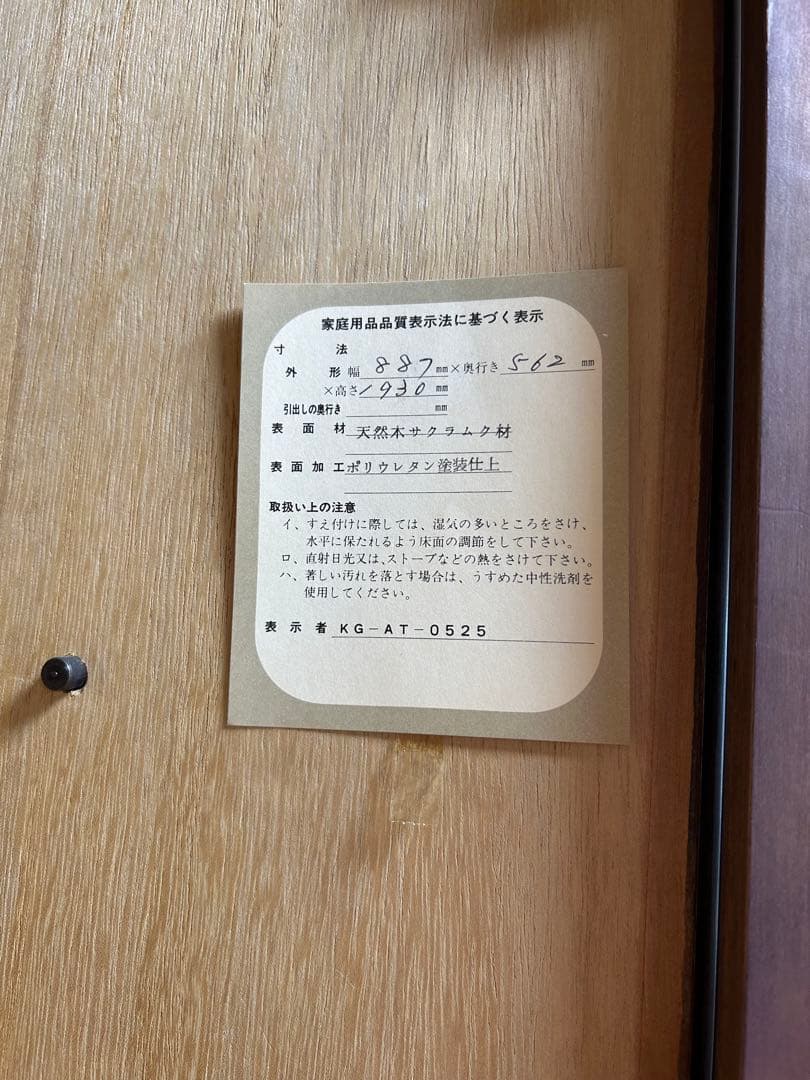 家庭用品品質表示法に基づく表示
寸法
外形 幅 887mm×奥行き 562mm
×高さ 1930mm
引出しの奥行き mm
表面材 天然木サクラムク材
表面加工 ポリウレタン塗装仕上
取扱い上の注意
イ、すえ付けに際しては、湿気の多いところをさけ、
水平に保たれるよう床面の調節をして下さい。
ロ、直射日光又は、ストーブなどの熱をさけて下さい。
ハ、著しい汚れを落とす場合は、うすめた中性洗剤を
使用してください。
表示者 KG-AT-0525